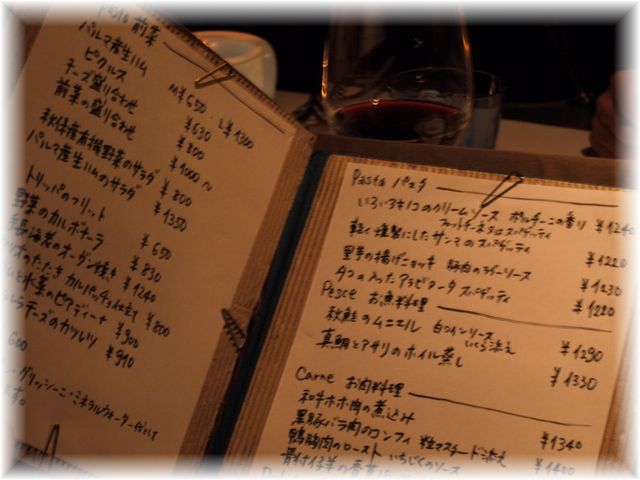 Pasto 前菜
パルマ産生ハム M¥650 . L¥1300
ピクルス ¥630
チーズ盛り合わせ ¥800
前菜の盛り合わせ ¥1000〜
秋保産有機野菜のサラダ ¥800
パルマ産生ハムのサラダ ¥1350
トリッパのフリット ¥650
野菜のカルボナーラ ¥830
手長海老のオーブン焼き ¥1240
のたたき カルパッチョ仕立て ¥800
ムと水菜のピアディーナ ¥900
チーズのカツレツ ¥910
600
グリッシーニ・ミネラルウォーター
ます。
Pasta パスタ
いろいろキノコのクリームソース ポルチーニの香り ¥1240
フェットチーネ又はスパゲッティ
軽く燻製にしたサンマのスパゲッティ ¥1220
里芋の揚げニョッキ 豚肉のラグーソース ¥1230
タコの入ったアラビアータ スパゲッティ ¥1220
Pesce お魚料理
秋鮭のムニエル 白ワインソース いくら添え ¥1290
真鯛とアサリのホイル蒸し ¥1330
Carne お肉料理
和牛ホホ肉の煮込み ¥1340
黒豚バラ肉のコンフィ 粒マスタード添え ¥1400
鴨胸肉のロースト いちじくのソース
骨付仔羊の香草